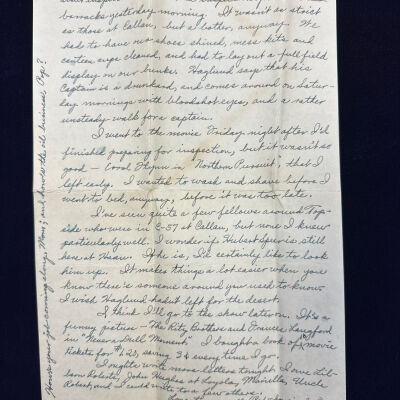 barracks yesterday morning. It wasn't as strict
as those at Callan, but a bother, anyway. We
had to have our shoes shined, mess kits and
canteen cups cleaned, and had to lay out a full field
display on our bunks. Haglund says that his
Captain is a drunkard, and comes around on Satur-
day mornings with bloodshot eyes, and a rather
unsteady walk for a captain.
I went to the movie Friday night after I'd
finished preparing for inspection, but it wasn't so
good — Errol Flynn in "Northern Pursuit", that I
left early. I wanted to wash and shave before I
went to bed, anyway, before it was too late.
I've seen quite a few fellows around Top-
side who were in C-57 at Callan, but none I knew
particularly well. I wonder if Hubert is still
here at Huan. If he is, I'd certainly like to look
him up. It makes things a lot easier when you
know there is someone around you used to know.
I wish Haglund hadn't left for the desert.
I think I'll go to the show later on. It's a
funny picture — The Ritz Brothers and Frances Langford
in "Never a Dull Moment". I bought a book of 10 movie
tickets for $1.20, saving 3¢ every time I go.
I ought to write more letters tonight. I owe
Roberts, John Hughes at Loyola, Marilla, Uncle
Robert, and I could write to a few others.
How's your job coming along, Mom; and how's the oil business, Pop?